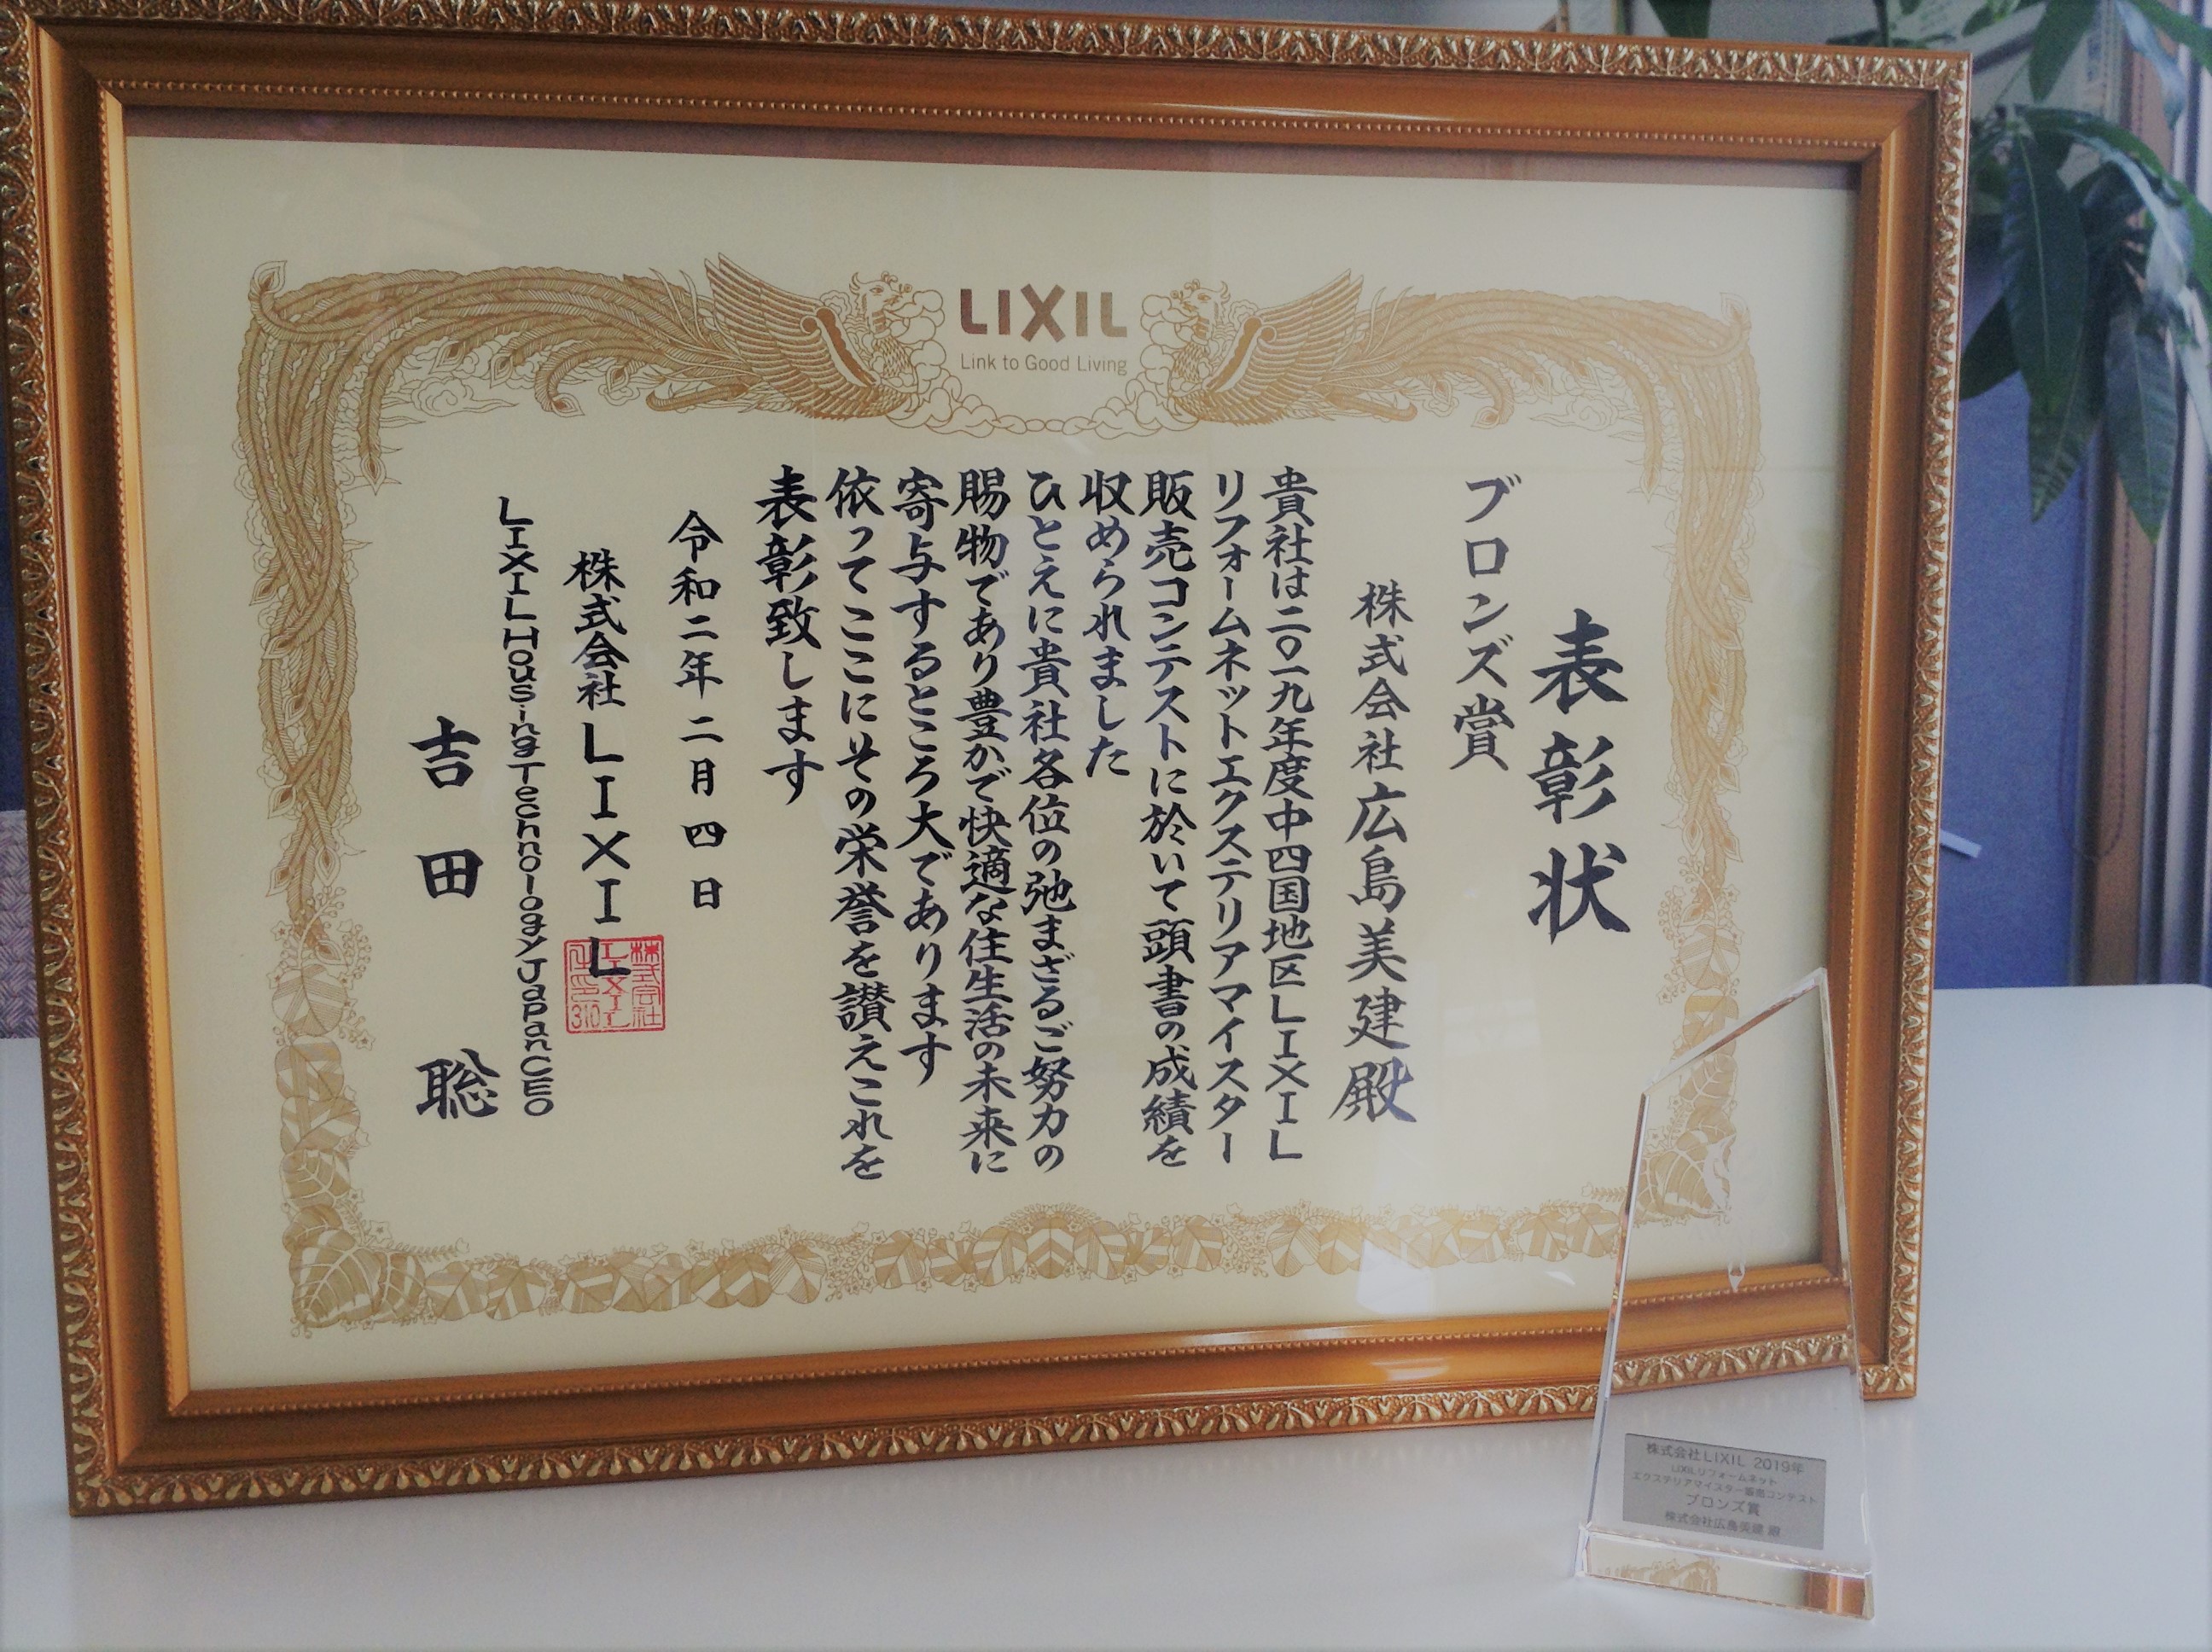 LIXIL
Link to Good Living
表彰状
ブロンズ賞
株式会社広島美建殿
貴社は二〇一九年度中四国地区LIXIL
リフォームネットエクステリアマイスター
販売コンテストに於いて頭書の成績を
収められました
ひとえに貴社各位の弛まざるご努力の
賜物であり豊かで快適な住生活の未来に
寄与するところ大であります
依ってここにその栄誉を讃えこれを
表彰致します
令和二年二月四日
株式会社LIXIL
LIXIL Housing Technology Japan CEO
吉田 聡
株式会社LIXIL 2019年
LIXILリフォームネット
エクステリアマイスター販売コンテスト
ブロンズ賞
株式会社広島美建 殿